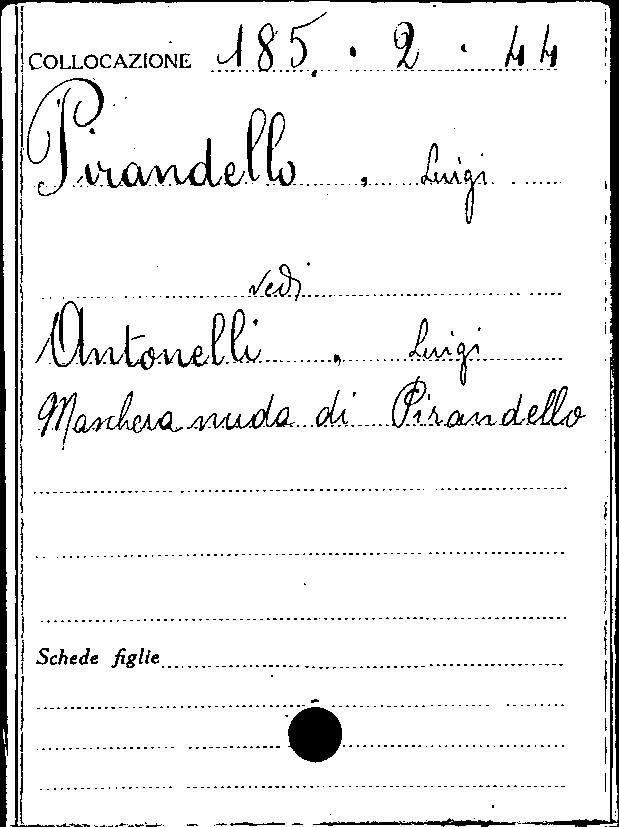 COLLOCAZIONE 185. · 2 · 44
Pirandello, Luigi
vedi
Antonelli, Luigi
Maschera nuda di Pirandello
Schede figlie